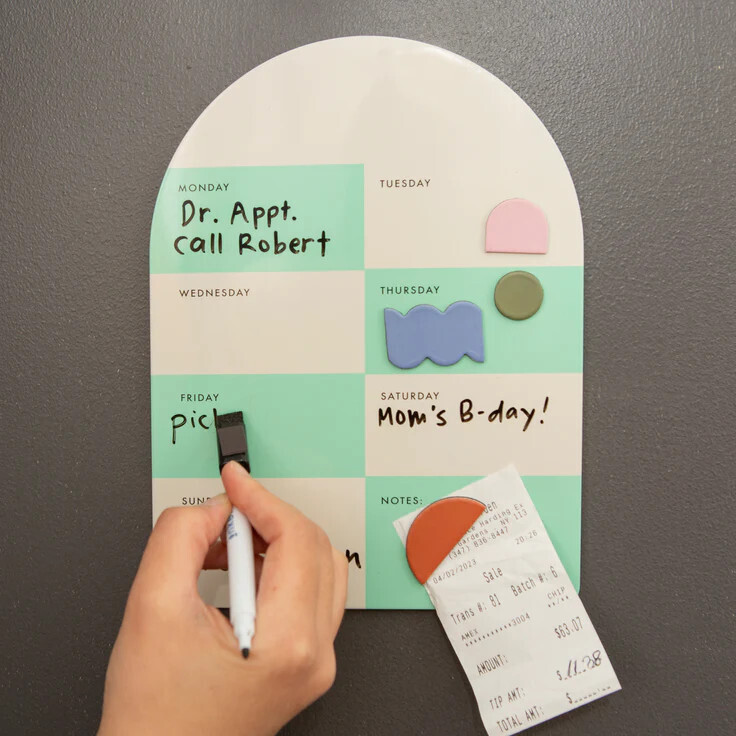 MONDAY
Dr. Appt.
call Robert
TUESDAY
WEDNESDAY
THURSDAY
FRIDAY
SATURDAY
Mom's B-day!
NOTES:
Harding Ex
NY 113
(347) 836-8447
04/02/2023
20:26
Sale
Trans #: 81
Batch #: 6
AMEX
CHIP
***********3004
**/**
AMOUNT:
$63.07
TIP AMT:
$ 11.38
TOTAL AMT:
$